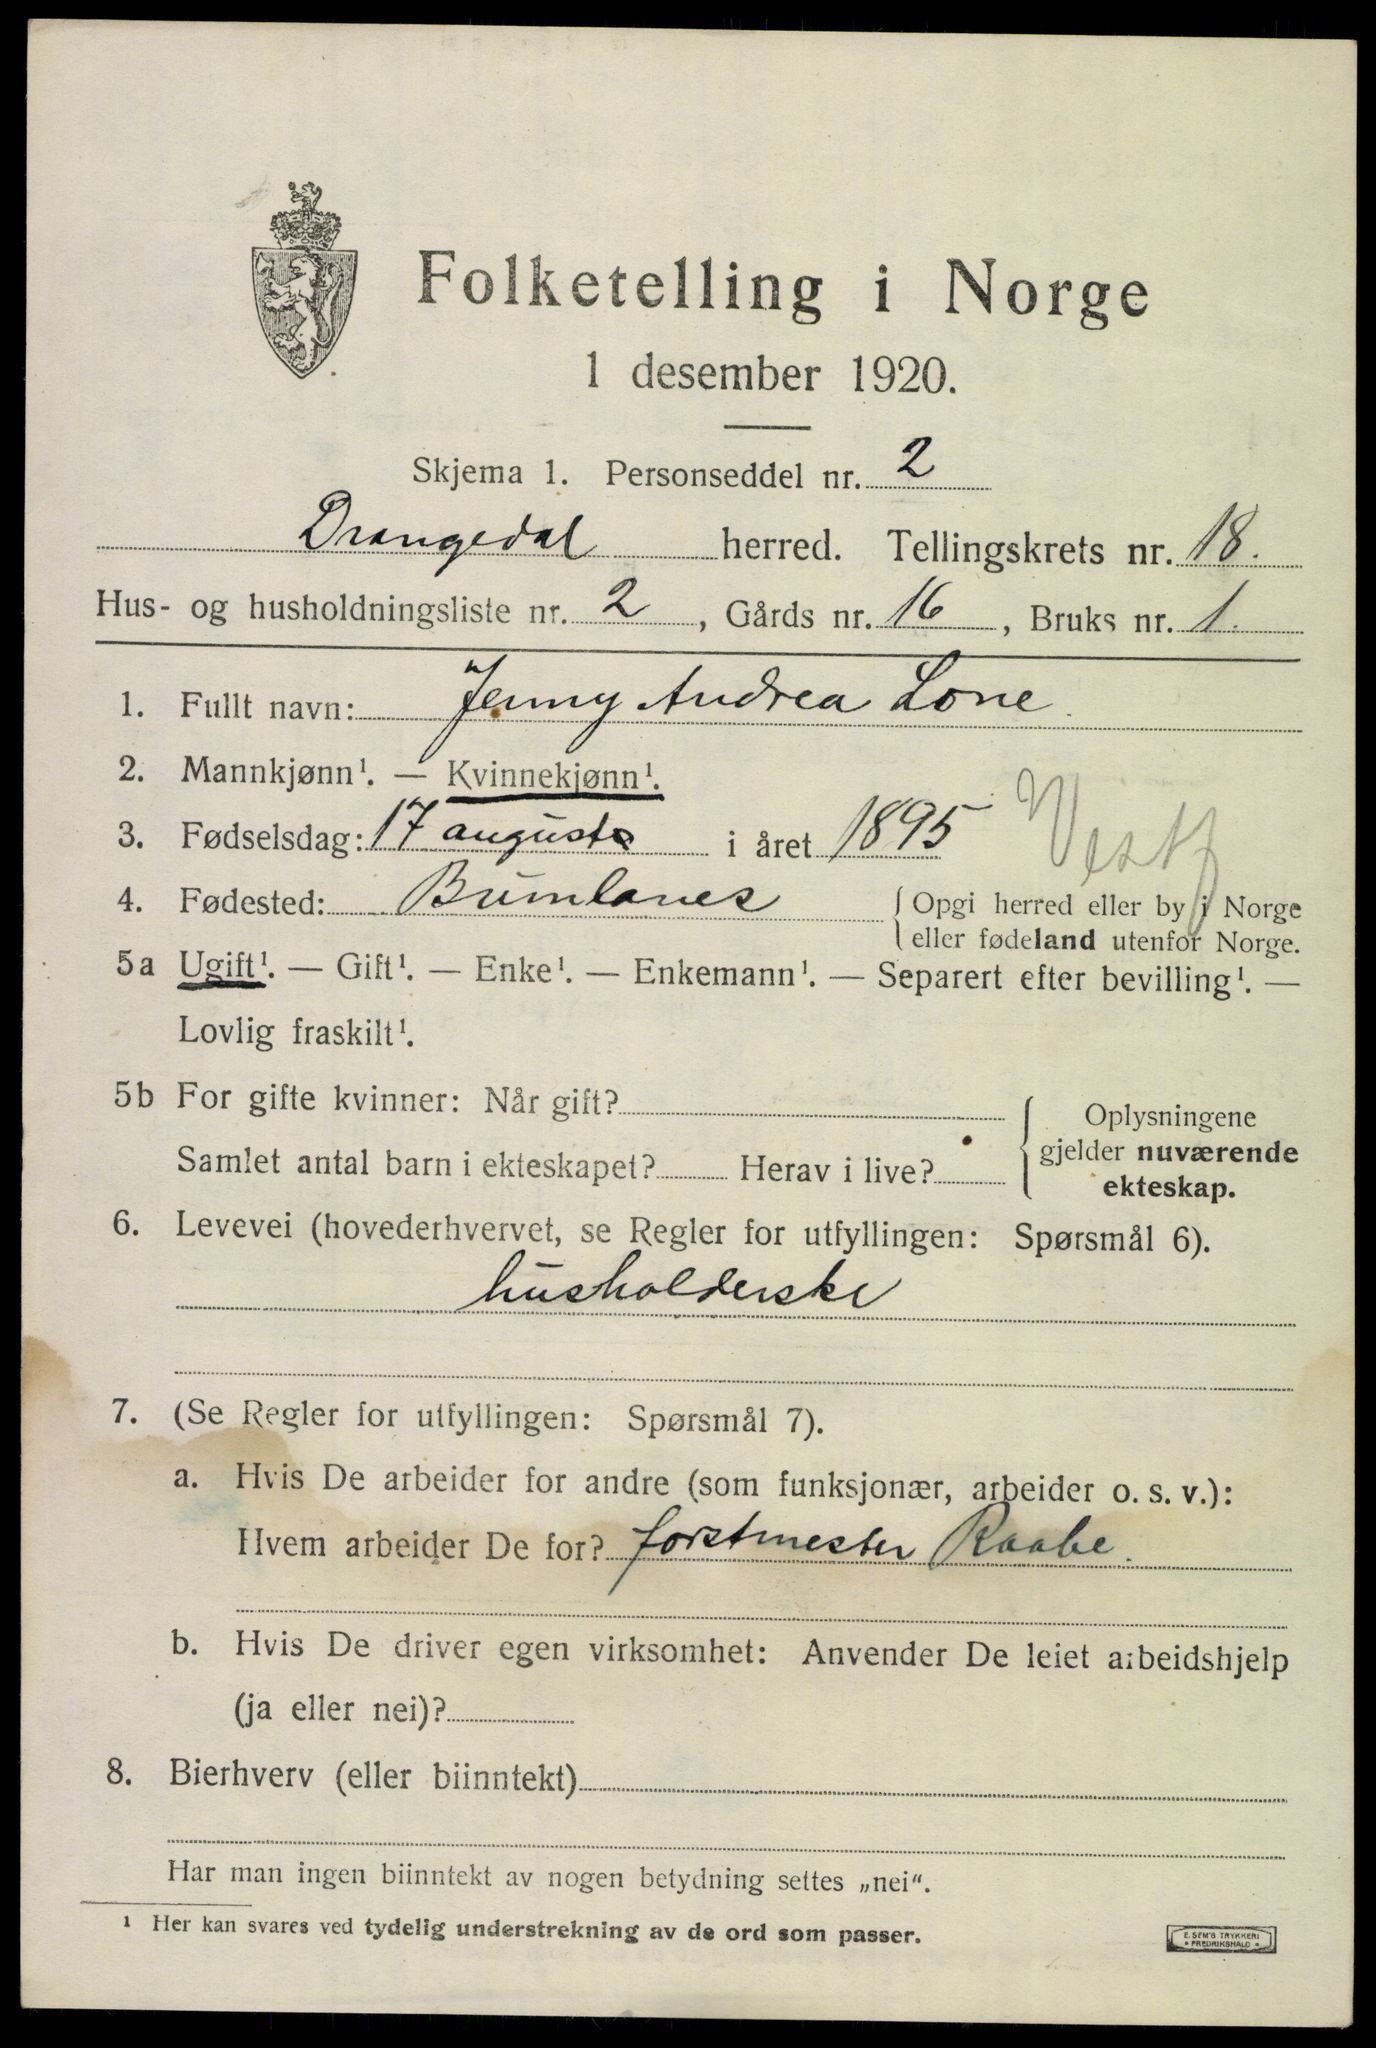 Folketelling i Norge
1 desember 1920.
Skjema 1. Personseddel nr. 2
Drangedal herred. Tellingskrets nr. 18.
Hus- og husholdningsliste nr. 2, Gårds nr. 16, Bruks nr. 1.
1. Fullt navn: Jenny Andrea Lone.
2. Mannkjønn¹. — Kvinnekjønn¹.
3. Fødselsdag: 17 august i året 1895 Vestf
4. Fødested: Brunlanes { Opgi herred eller by i Norge
eller fødeland utenfor Norge.
5a Ugift¹. — Gift¹. — Enke¹. — Enkemann¹. — Separert efter bevilling¹. —
Lovlig fraskilt¹.
5b For gifte kvinner: Når gift? Oplysningene
Samlet antal barn i ekteskapet? Herav i live? gjelder nuværende
ekteskap.
6. Levevei (hovederhvervet, se Regler for utfyllingen: Spørsmål 6).
husholderske
7. (Se Regler for utfyllingen: Spørsmål 7).
a. Hvis De arbeider for andre (som funksjonær, arbeider o. s. v.):
Hvem arbeider De for? forstmester Raabe.
b. Hvis De driver egen virksomhet: Anvender De leiet arbeidshjelp
(ja eller nei)?
8. Bierhverv (eller biinntekt)
Har man ingen biinntekt av nogen betydning settes „nei“.
¹ Her kan svares ved tydelig understrekning av de ord som passer.
E. SEM'S TRYKKERI
• FREDRIKSHALD •